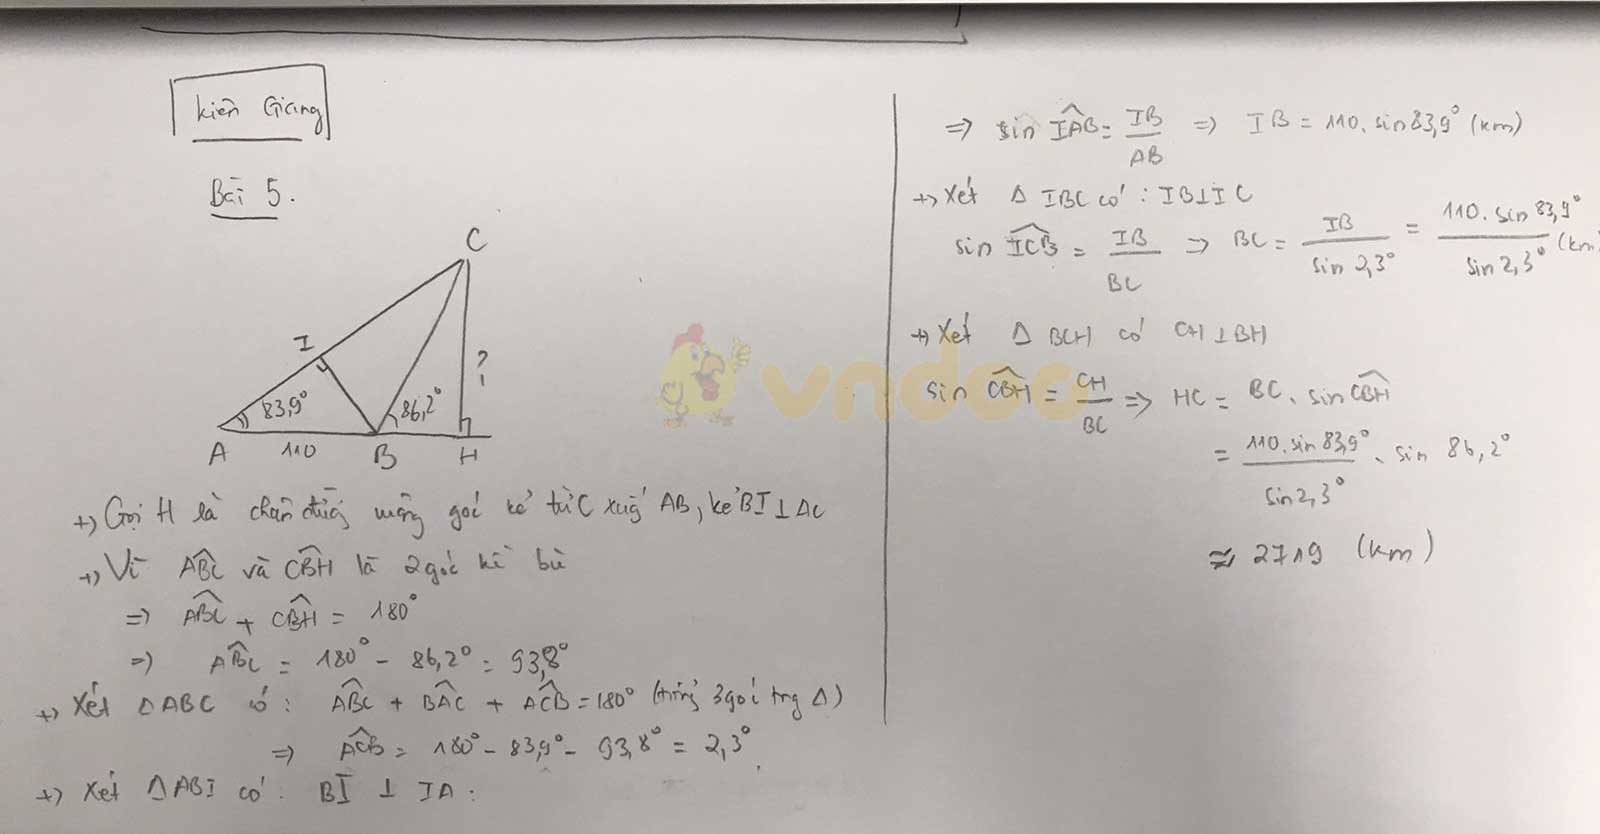 Kiên Giang
Bài 5.
C
I
?
83,9°
86,2°
A 110 B H
+) Gọi H là chân đường vuông góc kẻ từ C xuống AB, kẻ BI ⊥ AC
+) Vì ABC và CBH là 2 góc kề bù
=> ABC + CBH = 180°
=> ABC = 180° - 86,2° = 93,8°
+) Xét Δ ABC có: ABC + BAC + ACB = 180° (tổng 3 góc trg Δ)
=> ACB = 180° - 83,9° - 93,8° = 2,3°
+) Xét Δ ABI có: BI ⊥ IA:
=> sin IAB = IB/AB => IB = 110. sin 83,9° (km)
+) Xét Δ IBC có: IB ⊥ IC
sin ICB = IB/BC => BC = IB/sin 2,3° = 110. sin 83,9°/sin 2,3° (km)
+) Xét Δ BCH có CH ⊥ BH
sin CBH = CH/BC => HC = BC. sin CBH
= 110. sin 83,9°/sin 2,3° . sin 86,2°
≈ 2719 (km)
vndoc